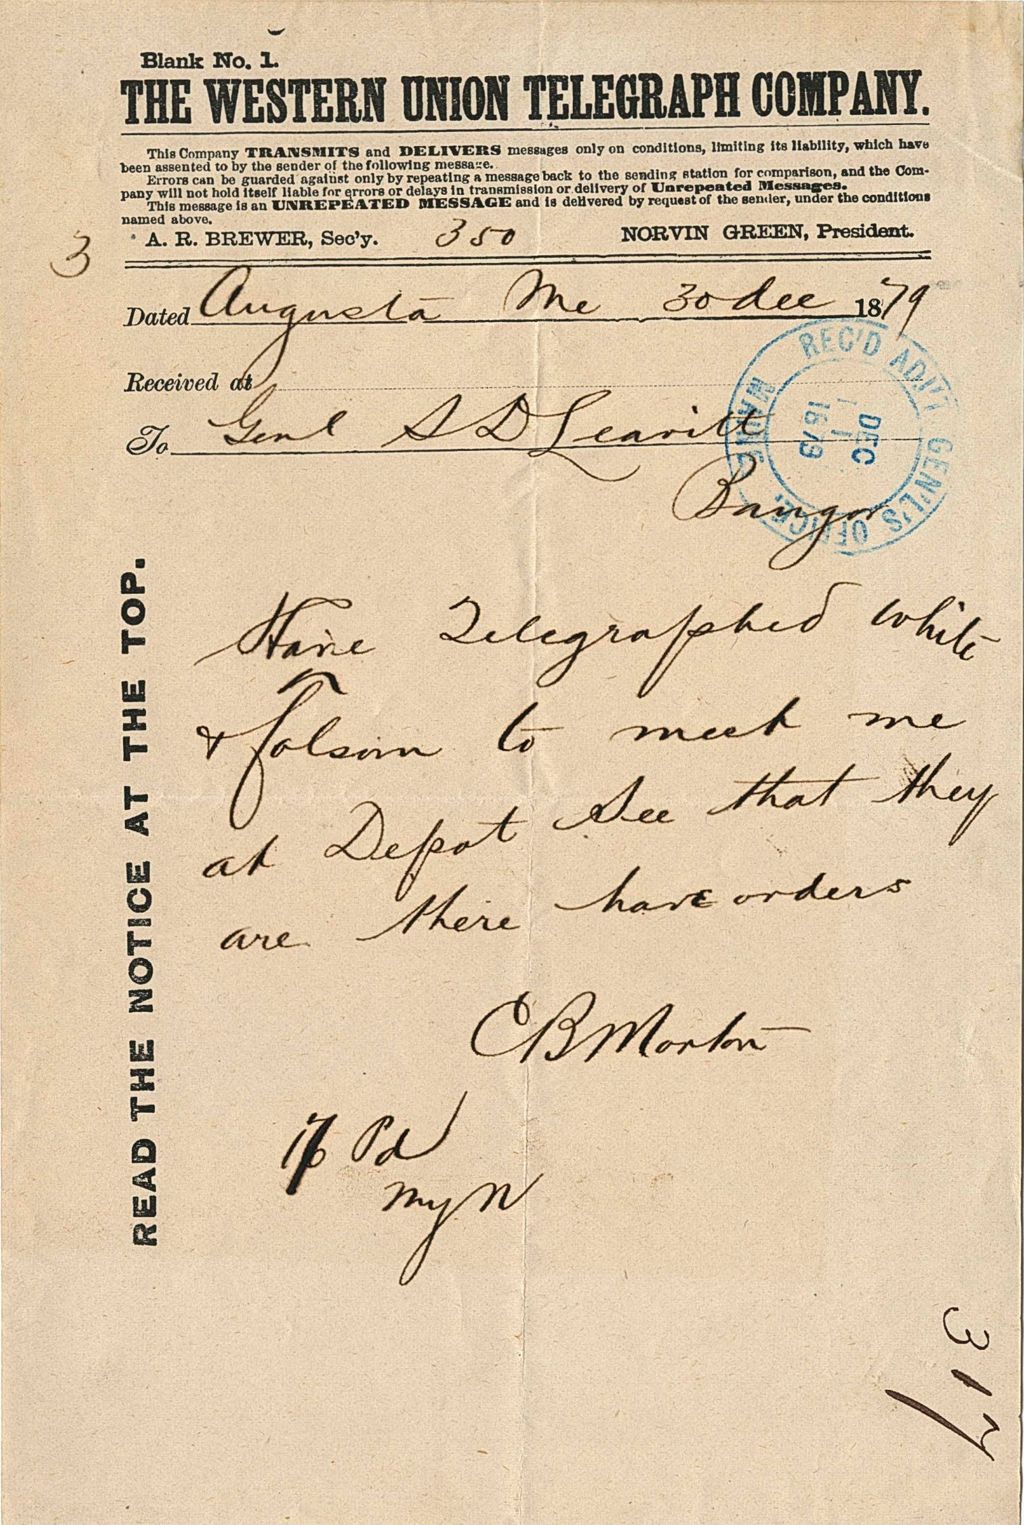 Blank No. 1.
THE WESTERN UNION TELEGRAPH COMPANY.
This Company TRANSMITS and DELIVERS messages only on conditions, limiting its liability, which have
been assented to by the sender of the following message.
Errors can be guarded against only by repeating a message back to the sending station for comparison, and the Com-
pany will not hold itself liable for errors or delays in transmission or delivery of Unrepeated Messages.
This message is an UNREPEATED MESSAGE and is delivered by request of the sender, under the conditions
named above.
3 A. R. BREWER, Sec'y. 350 NORVIN GREEN, President.
Dated Augusta Me 30 dec 1879
Received at
To Genl S D Leavitt
Bangor
REC'D ADJ'T GEN'L'S OFFICE, MAINE
DEC
1879
Have Telegraphed White
& Folsom to meet me
at Depot See that they
are there have orders
C B Morton
16 Pd
READ THE NOTICE AT THE TOP.
317